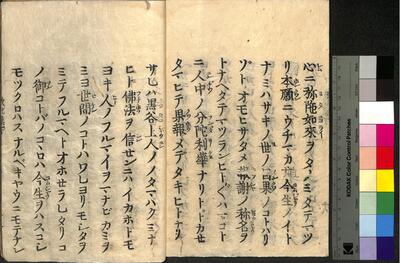 心ニ称陁如來ヲタノミタテマツ
リ本願ニウチマカせ今生ノイト
ナミハサキノ世ノ因果ノコトハリ
ゾトオモヒサタメ報謝ノ称名ヲ
トナヘタテマツランヒトハマコト
ニ人中ノ分陀利華ナリトホカせ
タマヒテ果報メデタキヒトナリ
サレハ黒谷上人ノノタマハクミナ
ヒト佛法ヲ信せンニハイカホトモ
ヨキ人ノフルマイヲマナビカミヲ
ミヨ世間ノコトハワレヨリモシタヲ
ミテフルマヘトオホせラレタリコ
ノ御コトバノコヽロハ今生ヲハスコシ
モツクロハスナルベキヤウニモテナシ
KODAK Color Control Patches